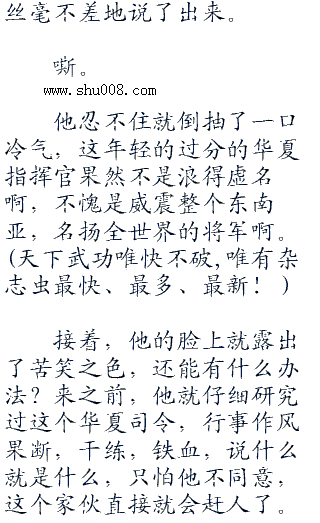 丝毫不差地说了出来。
嘶。
www.shu008.com
他忍不住就倒抽了一口
冷气，这年轻的过分的华夏
指挥官果然不是浪得虚名
啊，不愧是威震整个东南
亚，名扬全世界的将军啊。
(天下武功唯快不破,唯有杂
志虫最快、最多、最新！ )
接着，他的脸上就露出
了苦笑之色，还能有什么办
法？来之前，他就仔细研究
过这个华夏司令，行事作风
果断，干练，铁血，说什么
就是什么，只怕他不同意，
这个家伙直接就会赶人了。